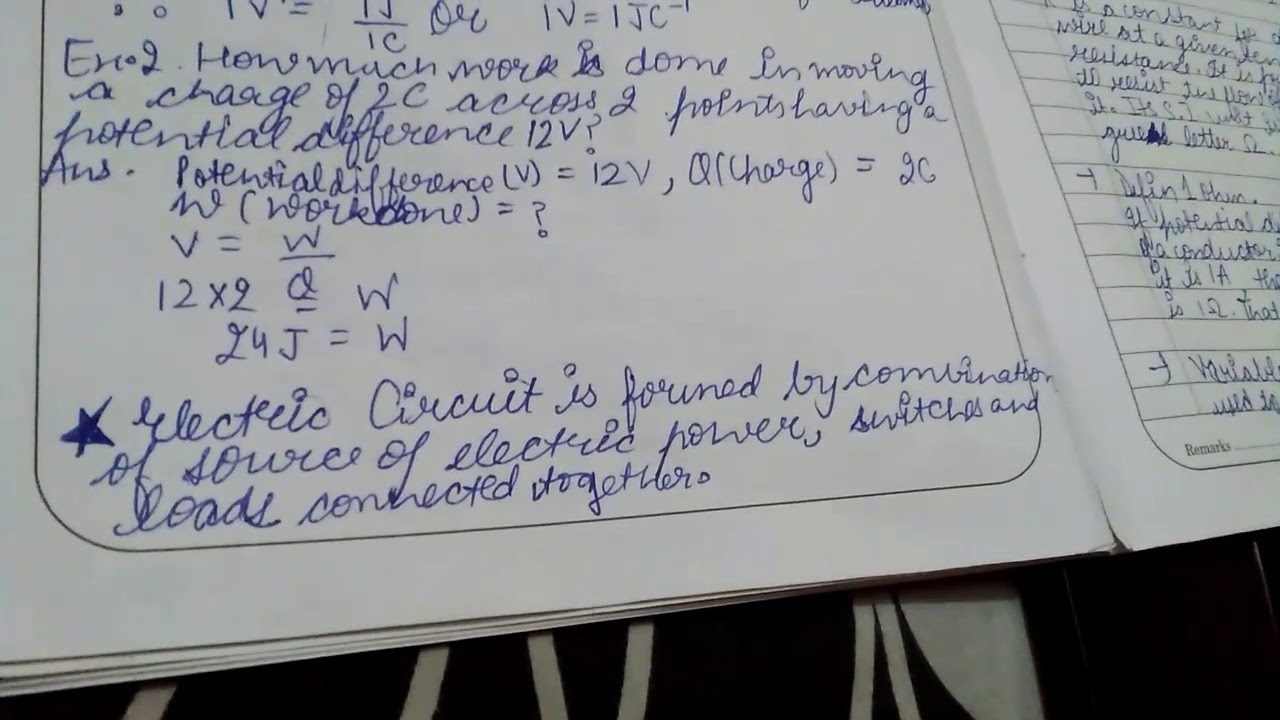 ∴ 1V = 1J/1C Or 1V = 1JC⁻¹
Ex.2. How much work is done in moving
a charge of 2C across 2 points having a
potential difference 12V?
Ans. Potential difference (V) = 12V, Q(Charge) = 2C
W (work done) = ?
V = W/Q
12 × 2 = W
24 J = W
★ Electric Circuit is formed by combination
of source of electric power, switches and
loads connected together.
is a constant
wire at a given
resistance. It is
to resist the
It. Its S.I unit
letter Ω.
→ Defin 1 ohm.
If potential
of a conductor
it is 1A, 
is 1Ω. That
→ Variable
used to
Remarks